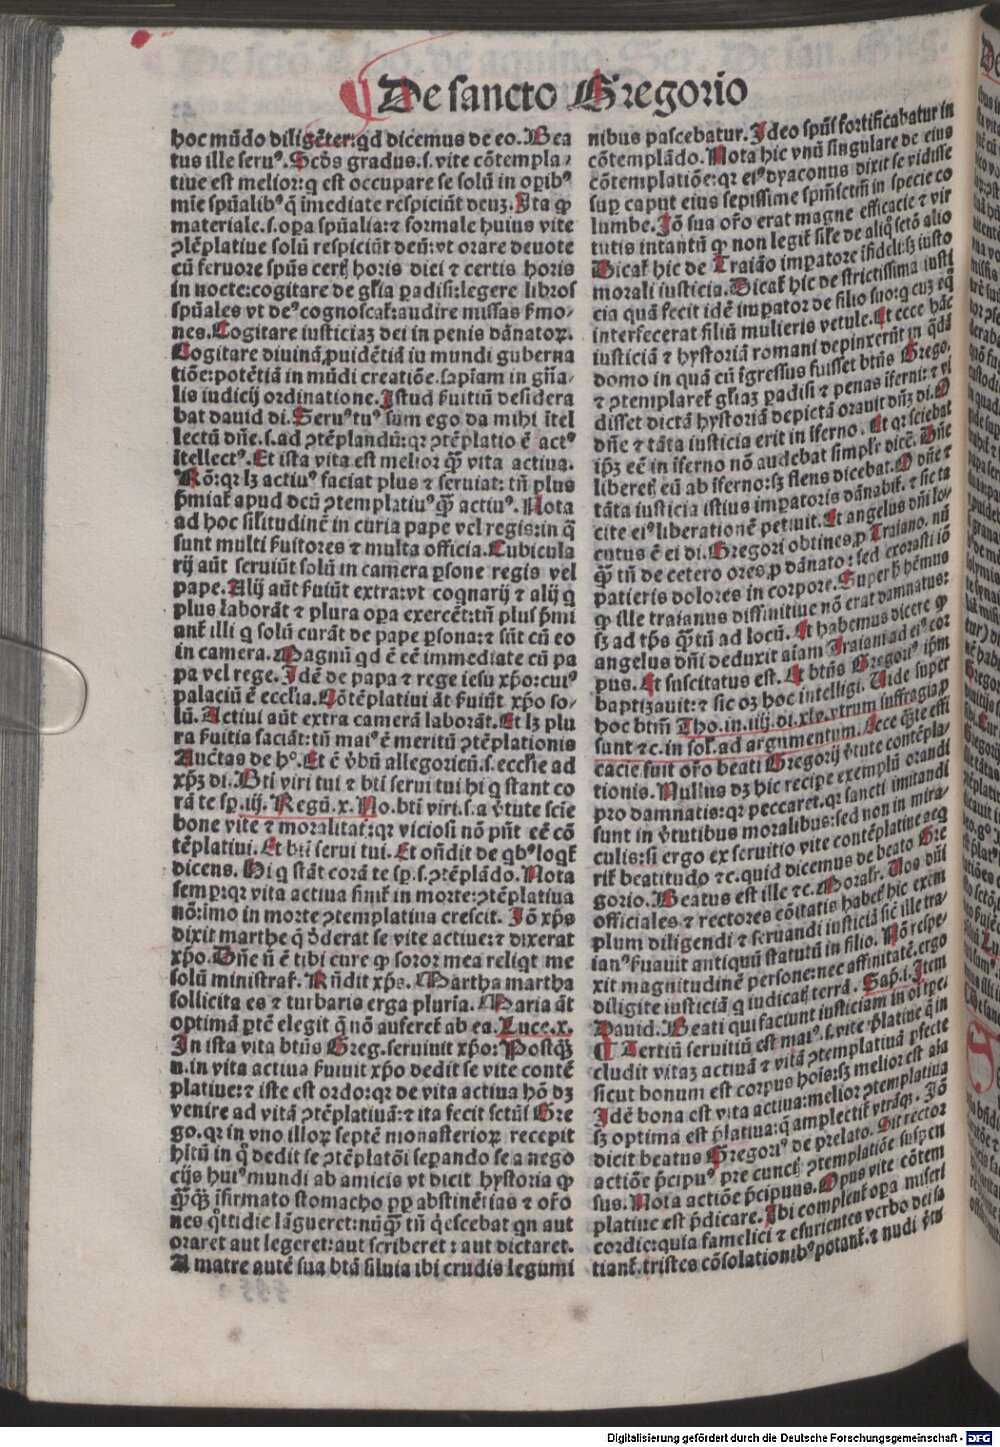 De sancto Gregorio
hoc mũdo diligẽter: qd dicemus de eo. Bea
tus ille seruꝰ. Scds gradus. s. vite cõtempla⸗
tiue est melior: q est occupare se solũ in opibꝰ
mīe spũalibꝰ q̃ imediate respiciũt deuʒ. Ita ꝙ
materiale. s. opa spũalia: ⁊ formale huius vite
ꝯtẽplatiue solũ respiciũt deũ: vt orare deuote
cũ feruore spũs certꝭ horis diei ⁊ certis horis
in nocte: cogitare de gl̃ia padisi: legere libros
spũales vt deꝰ cognoscat̃: audire missas ẞmo⸗
nes. Cogitare iusticiaʒ dei in penis dãnatoꝝ.
Cogitare diuinã ꝓuidẽtiã iu mundi guberna
tiõe: potẽtiã in mũdi creatiõe. sapiam in gñа⸗
lis iudicij ordinatione. Istud ẞuitiũ desidera
bat dauid di. Seruꝰ tuꝰ sum ego da mihi ĩtel
lectũ dñe. s. ad ꝯtẽplandũ: qꝛ ꝯtẽplatio ẽ actꝰ
ĩtellectꝰ. Et ista vita est melior q̃ꝫ vita actiua.
Rõ: qꝛ lʒ actiuꝰ faciat plus ⁊ seruiat: tñ plus
p̃miat̃ apud deũ ꝯtemplatiuꝰ q̃ꝫ actiuꝰ. Nota
ad hoc sil̃itudinẽ in curia pape vel regis: in q̃
sunt multi ẞuitores ⁊ multa officia. Cubicula
rij aũt seruiũt solũ in camera psone regis vel
pape. Alij aũt ẞuiũt extra: vt coqnarij ⁊ alij q
plus laborãt ⁊ plura opa exercẽt: tñ plus p̃mi
ant̃ illi q solũ curãt de pape psona: ⁊ sũt cũ eo
in camera. Magnũ qd ẽ eẽ immediate cũ pa
pa vel rege. Idẽ de papa ⁊ rege iesu xp̃o: cuiꝰ
palaciũ ẽ ecclia. Cõtẽplatiui ãt ẞuiũt xp̃o so⸗
lũ. Actiui aũt extra camerã laborãt. Et lʒ plu
ra ẞuitia faciãt: tñ maiꝰ ẽ meritũ ꝯtẽplationis
Auctas de hº. Et ẽ v̾bũ allegoricũ. s. ecclie ad
xp̃ʒ di. Bti viri tui ⁊ bti serui tui hi q stant co
rã te sp. iij. Regũ. x. No. bti viri. s. a v̾tute scie
bone vite ⁊ moralitat̃: qꝛ viciosi nõ pñt eẽ cõ
tẽplatiui. Et bti serui tui. Et oñdit de qbꝰ logt̃
dicens. Hi q stãt corã te sp. s. ꝯtẽplãdo. Nota
semp: qꝛ vita actiua finit̃ in morte: ꝯtẽplatiua
nõ: imo in morte ꝯtemplatiua crescit. Iõ xp̃s
dixit marthe q̃ v̾derat se vite actiue: ⁊ dixerat
xp̃o. Dñe ñ ẽ tibi cure ꝙ soror mea reliqt me
solũ ministrar̃. Rñdit xp̃s. Martha martha
sollicita es ⁊ turbaris erga pluria. Maria ãt
optimã ptẽ elegit q̃ nõ auferet̃ ab ea. Luce. x.
In ista vita btũs Greg. seruiuit xp̃o: Postq̃ʒ
n. in vita actiua ẞuiuit xp̃o dedit se vite contẽ
platiue: ⁊ iste est ordo: qꝛ de vita actiua hõ dʒ
venire ad vitã ꝯtẽplatiuã: ⁊ ita fecit sctũs Gre
go. qꝛ in vno illoꝝ septẽ monasterioꝝ recepit
hĩtũ in q̊ dedit se ꝯtẽplatõi sepando se a nego
cijs huiꝰ mundi ab amicis vt dicit hystoria ꝙ
q̃ꝫq̃ʒ ĩfirmato stomacho pp abstinẽtias ⁊ or̃o
nes q̊ttidie lãgueret: nũq̃ꝫ tñ q̊escebat qn aut
oraret aut legeret: aut scriberet: aut dictaret.
A matre autẽ sua btã siluia ibi crudis legumi
nibus pascebatur. Ideo spũs fortificabatur in
cõtemplãdo. Nota hic vnũ singulare de eius
cõtemplatiõe: qꝛ eiꝰ dyaconus dixit se vidisse
sup caput eius sepissime spm̃sctm̃ in specie co
lumbe. Iõ sua or̃o erat magne efficacie ⁊ vir
tutis intantũ ꝙ non legit̃ sil̃e de aliq̊ sctõ alio
Dicat̃ hic de Traião impatore ĩfideli: sʒ iusto
morali iusticia. Dicat̃ hic de strictissima iusti
cia quã fecit idẽ impator de filio suo: q cuʒ eq̊
interfecerat filiũ mulieris vetule. Et ecce hãc
iusticiã ⁊ hystoriã romani depinxerũt in q̃dã
domo in quã cũ ĩgressus fuisset btũs Grego.
⁊ ꝯtemplaret̃ gl̃iaʒ padisi ⁊ penas ĩferni: ⁊ vi
disset dictã hystoriã depictã orauit dñʒ di. O
dñe ⁊ tãta iusticia erit in ĩferno. Et qꝛ sciebat
ip̃ʒ eẽ in ĩferno nõ audebat simplr dicẽ. Dñe
liberet̃ eũ ab ĩferno: sʒ flens dicebat. O dñe ⁊
tãta iusticia istius impatoris dãnabit̃. ⁊ sic ta
cite eiꝰ liberationẽ petiuit. Et angelus dñi lo⸗
cutus ẽ ei di. Gregori obtines ꝓ Traiano. nũ
q̃ꝫ tñ de cetero ores ꝓ dãnato: sed exorasti iõ
patieris dolores in corpore. Super h̾ hẽmus
ꝙ ille traianus diffinitiue nõ erat damnatus:
sʒ ad tp̃s q̃ꝫtũ ad locũ. Et habemus dicere ꝙ
angelus dñi deduxit aiam Traiani ad eiꝰ cor
pus. Et suscitatus est. Et btũs Gregoriꝰ ip̃m
baptizauit: ⁊ sic oʒ hoc intelligi. Uide super
hoc btm̃ Tho. in. iiij. di. xlv. vtrum suffragia ꝓ
sunt ⁊c. in sol̃. ad argumentum. Ecce q̃te effi
cacie fuit or̃o beati Gregorij v̾tute contẽpla⸗
tionis. Nullus dʒ hic recipe exemplũ orandi
pro damnatis: qꝛ peccaret. qꝛ sancti imitandi
sunt in v̾tutibus moralibus: sed non in mira⸗
culis: si ergo ex seruitio vite contẽplatiue acq
rit̃ beatitudo ⁊c. quid dicemus de beato Gre
gorio. Beatus est ille ⁊c. Moralr̃. Uos dñi
officiales ⁊ rectores cõitatis habet̃ hic exem
plum diligendi ⁊ seruandi iusticiã sic̃ ille tra⸗
ianꝰ ẞuauit antiquũ statutũ in filio. Nõ respe⸗
xit magnitudinẽ persone: nec affinitatẽ. ergo
diligite iusticiã q iudicatꝭ terrã. Sap. i. Item
Dauid. Beati qui faciunt iusticiam in oĩ tpe.
¶ Tertiũ seruitiũ est maiꝰ. s. vite p̃latiue q̃ in
cludit vitaʒ actiuã ⁊ vitã ꝯtemplatiuã pfecte
sicut bonum est corpus hoĩs: sʒ melior est aĩa
Idẽ bona est vita actiua: melior ꝯtemplatiua
sʒ optima est p̃latiua: q̃ amplectit̃ vtrãqʒ. Iõ
dicit beatus Gregoriꝰ de prelato. Sit rector
actiõe p̃cipuꝰ pre cunctꝭ ꝯtemplatiõe suspen
sus. Nota actiõe p̃cipuus. Opus vite cõtem
platiue est p̃dicare. Ibi complent̃ opa miseri
cordie: quia famelici ⁊ esurientes verbo dei sa
tiant̃. tristes cõsolationibꝰ potant̃. ⁊ nudi v̾tu
Digitalisierung gefördert durch die Deutsche Forschungsgemeinschaft - DFG